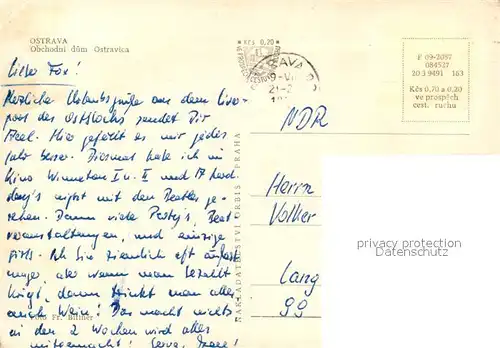 OSTRAVA
Obchodní dům Ostravica
Kčs 0,70
F 09-2057
084527
20 3 9491 163
Kčs 0,70 a 0,20
ve prospěch
cest. ruchu
Lieber Fox!
Herzliche Urlaubsgrüße aus dem Liver-
pool des Ostblocks sendet Dir
Hier gefällt es mir jedes
Jahr besser. Diesmal habe ich im
Kino Winnetou I u. II und A hard
day's night mit den Beatles ge-
sehen. Dann viele Party's, Beat
veranstaltungen, und einzige
girls. Ich bin ziemlich oft
aber wenn man bezahlt
kriegt, dann trinkt man alles
auch Wein! Das macht nichts
in den 2 Wochen wird alles
mitgemacht!
NDR
Herrn
Volker
Lang
99
NAKLADATELSTVÍ ORBIS - PRAHA
Foto Fr.
privacy protection
Datenschutz